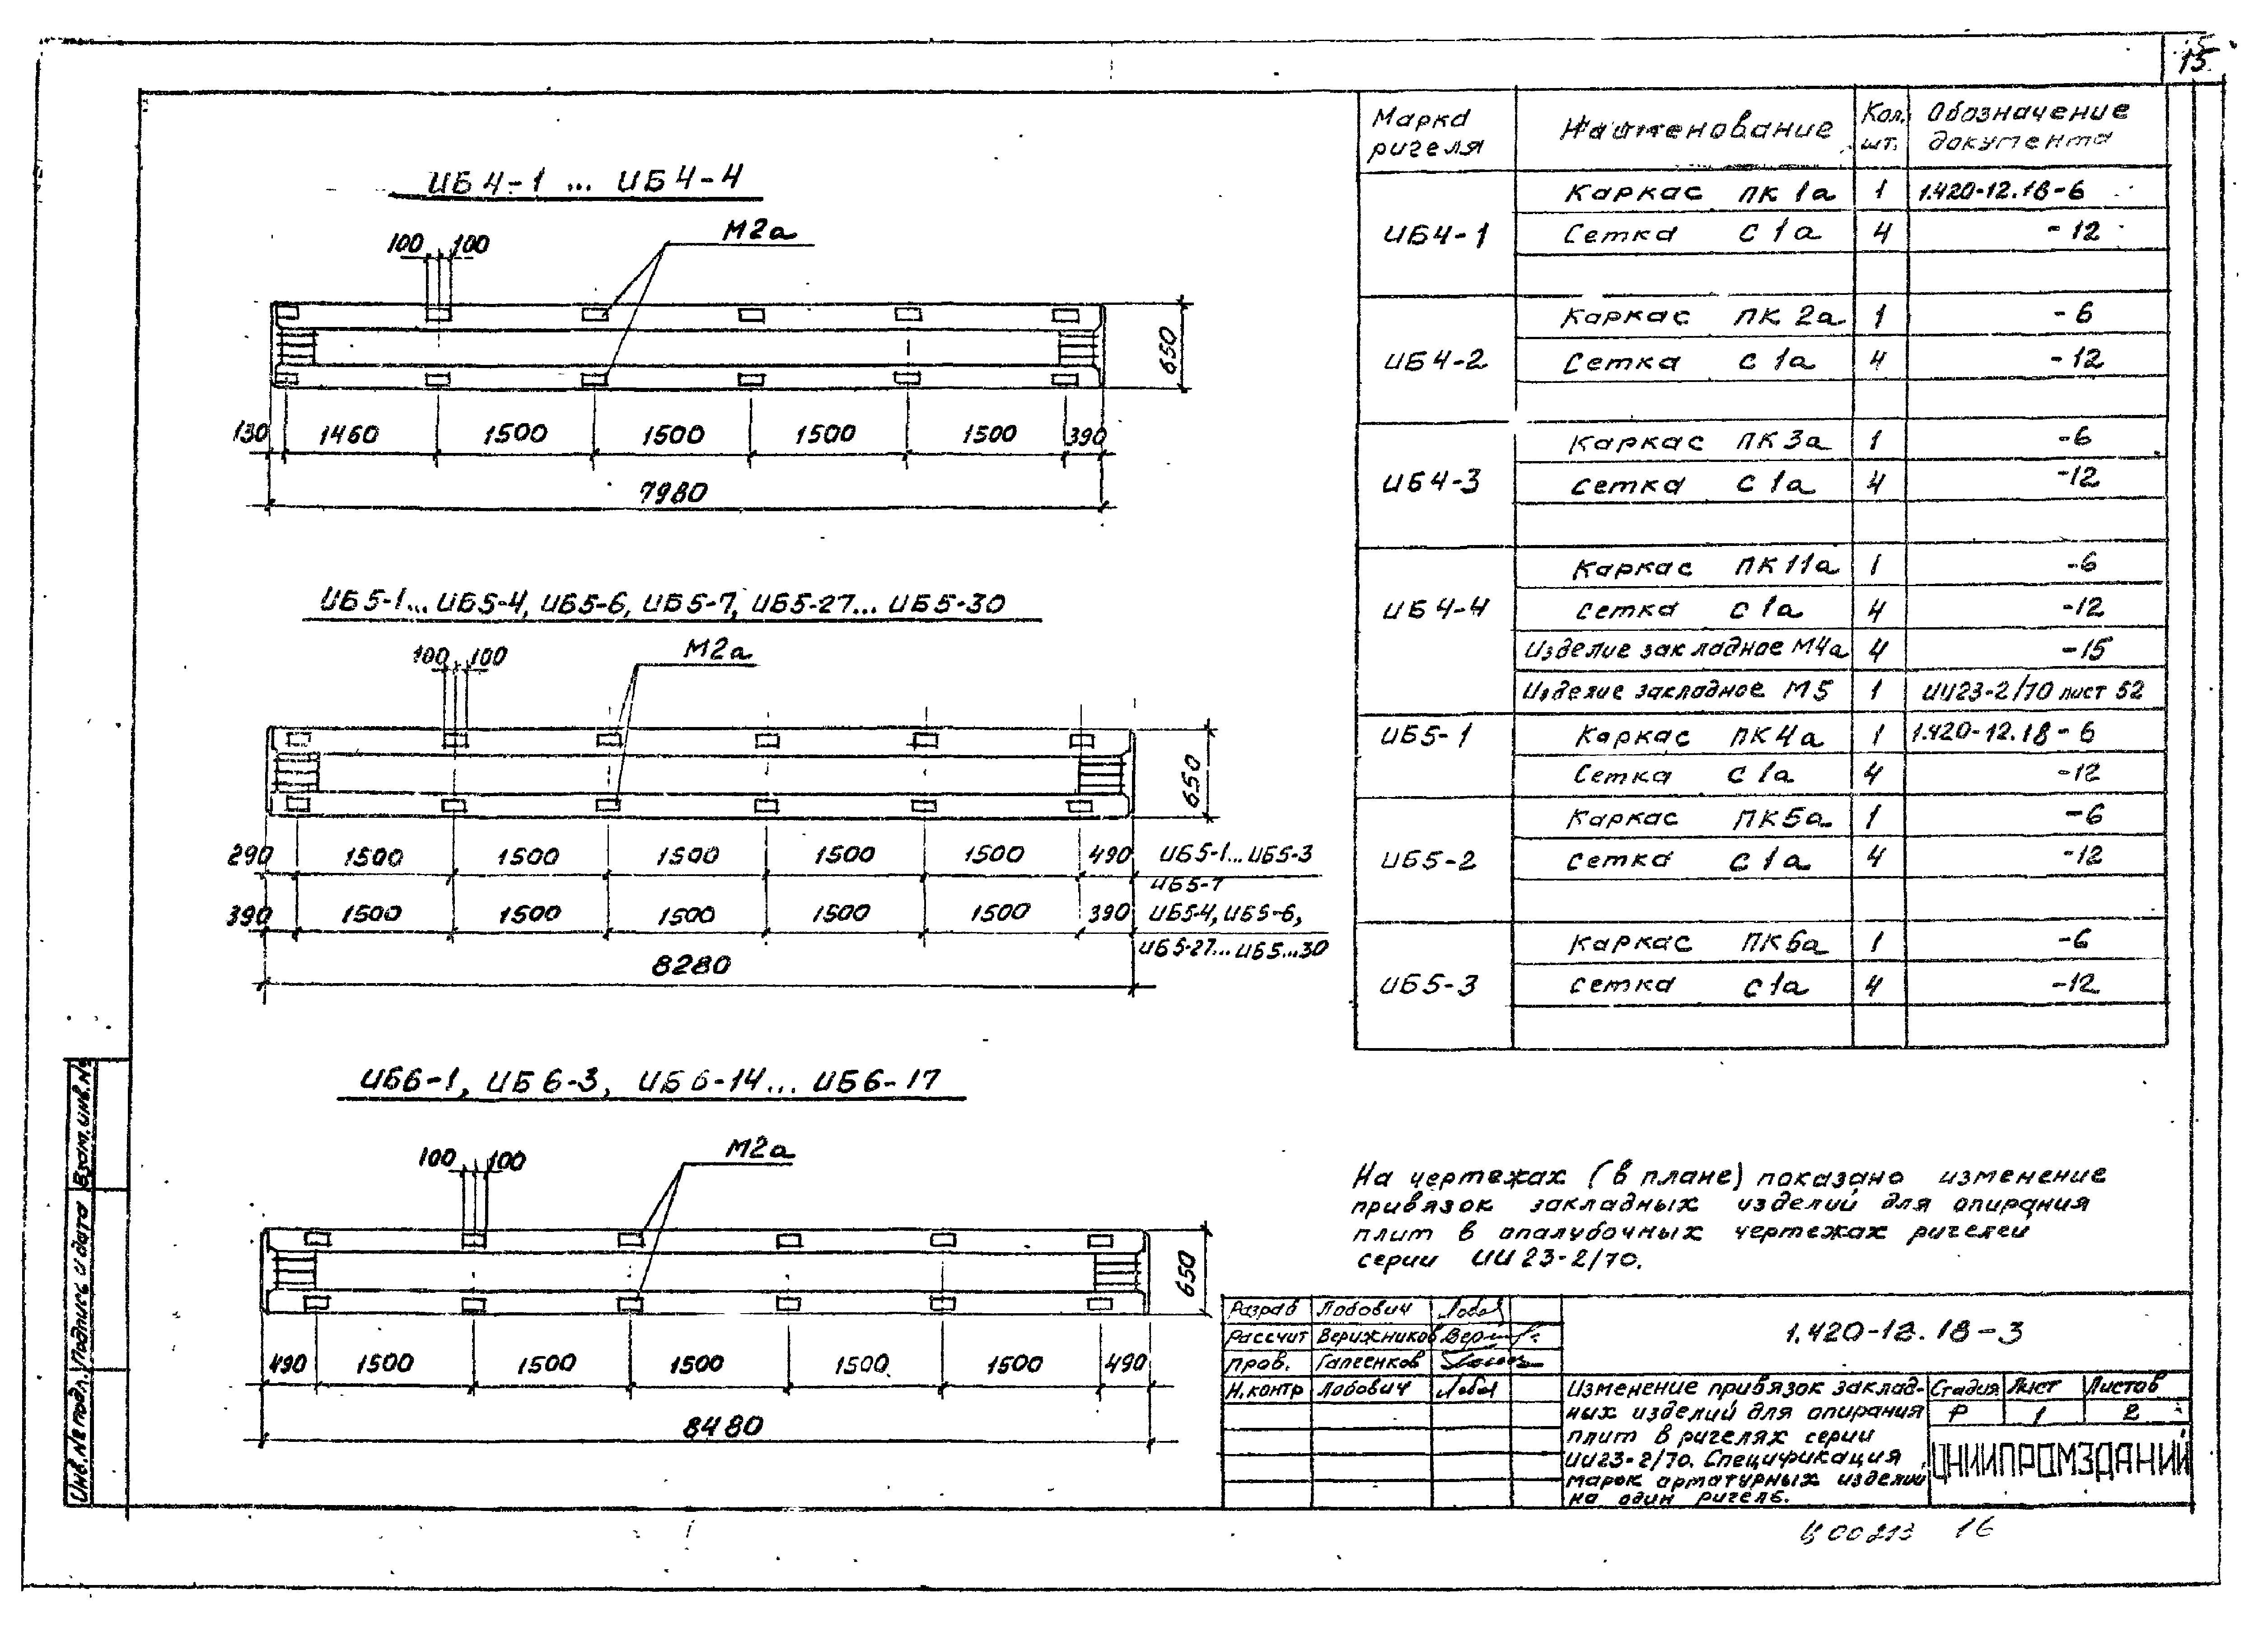 15
ИБ4-1 ... ИБ4-4
100 100 М2а
650
130 1460 1500 1500 1500 1500 390
7980
ИБ5-1... ИБ5-4, ИБ5-6, ИБ5-7, ИБ5-27... ИБ5-30
100 100 М2а
650
290 1500 1500 1500 1500 1500 490 ИБ5-1... ИБ5-3
ИБ5-7
390 1500 1500 1500 1500 1500 390 ИБ5-4, ИБ5-6,
ИБ5-27... ИБ5...30
8280
ИБ6-1, ИБ6-3, ИБ6-14... ИБ6-17
100 100 М2а
650
490 1500 1500 1500 1500 1500 490
8480
Марка ригеля Наименование Кол. шт. Обозначение документа
ИБ4-1 Каркас ПК 1а 1 1.420-12.18-6
Сетка С 1а 4 -12
ИБ4-2 Каркас ПК 2а 1 -6
Сетка С 1а 4 -12
ИБ4-3 Каркас ПК 3а 1 -6
Сетка С 1а 4 -12
ИБ4-4 Каркас ПК 11а 1 -6
Сетка С 1а 4 -12
Изделие закладное М4а 4 -15
Изделие закладное М5 1 ИИ23-2/70 лист 52
ИБ5-1 Каркас ПК4а 1 1.420-12.18-6
Сетка С 1а 4 -12
ИБ5-2 Каркас ПК5а 1 -6
Сетка С 1а 4 -12
ИБ5-3 Каркас ПК6а 1 -6
Сетка С1а 4 -12
На чертежах (в плане) показано изменение
привязок закладных изделий для опирания
плит в опалубочных чертежах ригелей
серии ИИ 23-2/70.
Разраб Лобович
Рассчит Верижников
Пров. Гапеенков
Н.контр Лобович
1.420-12.18-3
Изменение привязок заклад-
ных изделий для опирания
плит в ригелях серии
ИИ23-2/70. Спецификация
марок арматурных изделий
на один ригель.
Стадия Лист Листов
Р 1 2
ЦНИИПРОМЗДАНИЙ
Ц00213 16
Инв.№ подл. Подпись и дата Взам.инв.№